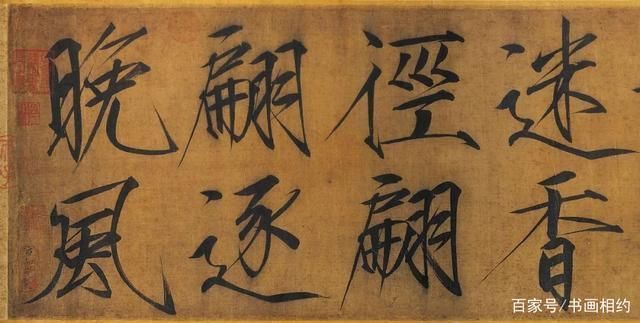 迷香
徑翩
翩逐
晚風
百家号/书画相约